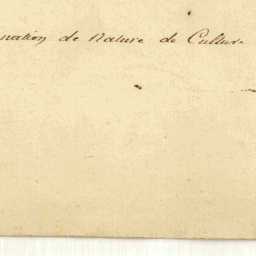 nation de Nature de Culture